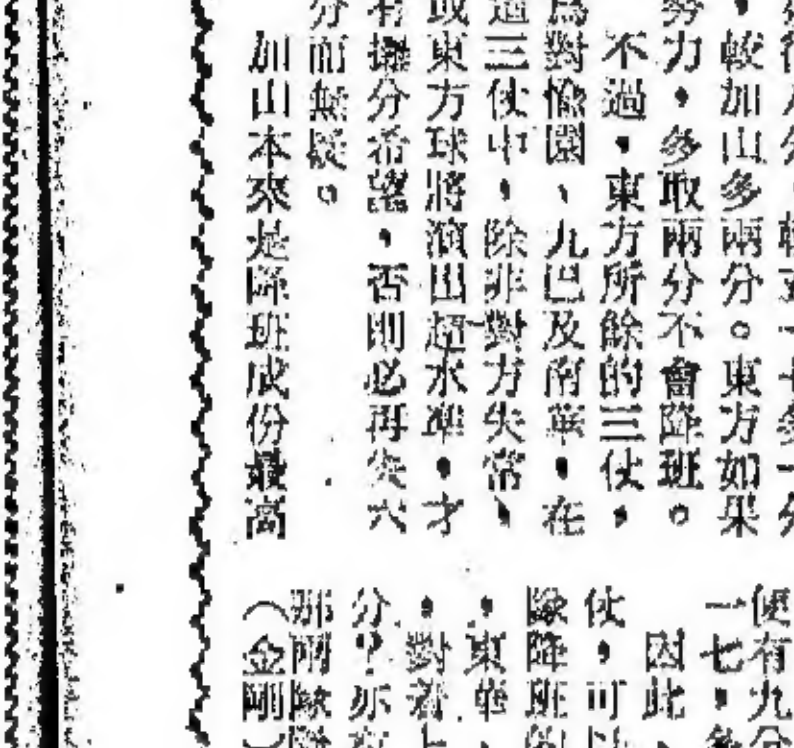 ，較加山多兩分。東方如果
努力，多取兩分不會降班。
不過，東方所餘的三仗，
爲對愉園、九巴及南華，在
這三仗中，除非對方失常、
或東方球將演出超水準，才
有攞分希望，否則必再失六
分而無疑。
加山本來是降班成份最高
便有九分
一七，
因此、
仗，可以
險降班的
，東華、
，對着
分，亦
那兩隊
（金剛）